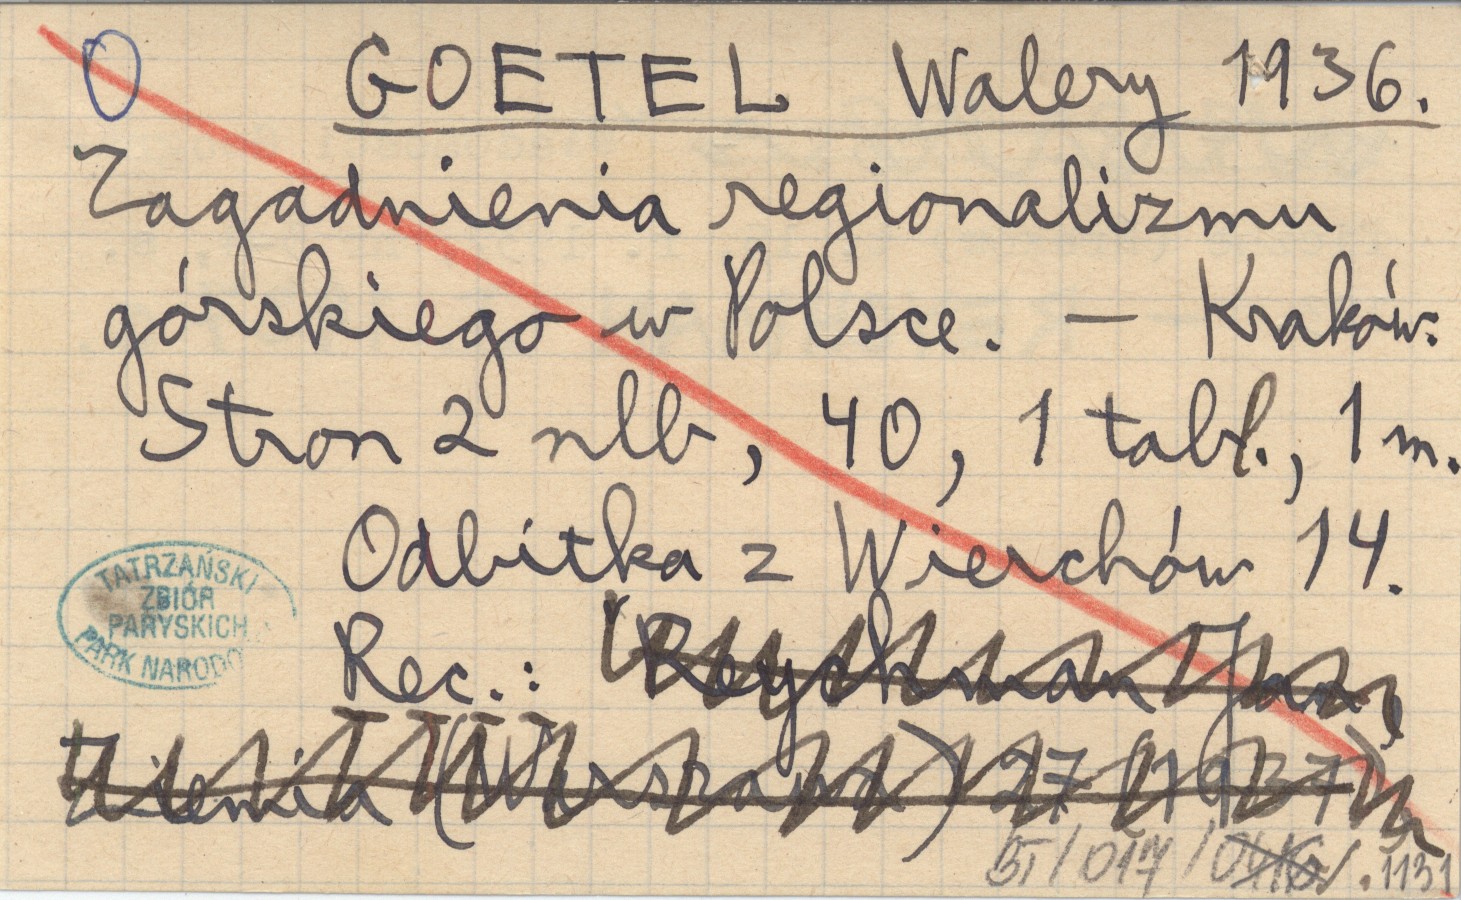 O GOETEL Walery 1936.
Zagadnienia regionalizmu
górskiego w Polsce. — Kraków.
Stron 2 nlb, 40, 1 tabl., 1 m.
Odbitka z Wierchów 14.
Rec.: Reychman Jan,
Ziemia (Warszawa) 27 (1937)
TATRZAŃSKI
ZBIÓR
PARYSKICH
PARK NARODO
BT/017/ .1131